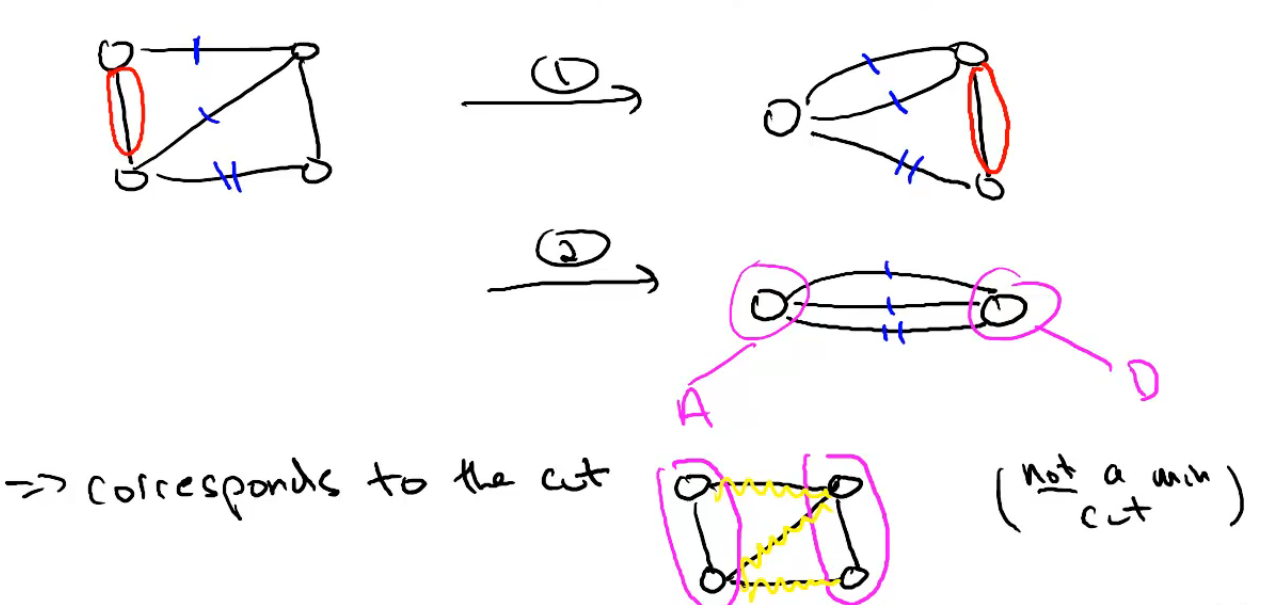 ①
②
A
B
=> corresponds to the cut
(not a min
cut)